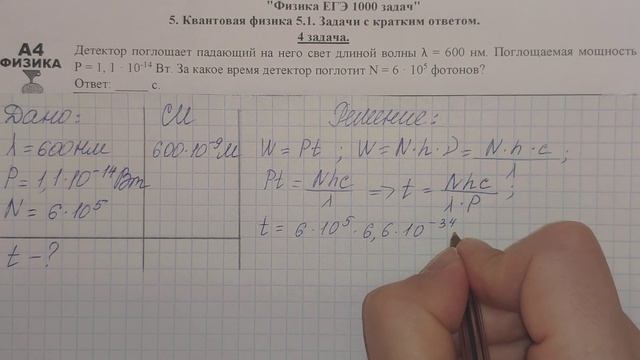 "Физика ЕГЭ 1000 задач"
5. Квантовая физика 5.1. Задачи с кратким ответом.
4 задача.
А4
ФИЗИКА
Детектор поглощает падающий на него свет длиной волны λ = 600 нм. Поглощаемая мощность
P = 1, 1 · 10⁻¹⁴ Вт. За какое время детектор поглотит N = 6 · 10⁵ фотонов?
Ответ: _____ с.
Дано:
λ = 600 нм
P = 1,1·10⁻¹⁴ Вт
N = 6·10⁵
t - ?
СИ
600·10⁻⁹ м
Решение:
W = Pt ; W = N·h·ν = N·h·c / λ ;
Pt = Nhc / λ => t = Nhc / λ·P ;
t = 6·10⁵·6,6·10⁻³⁴